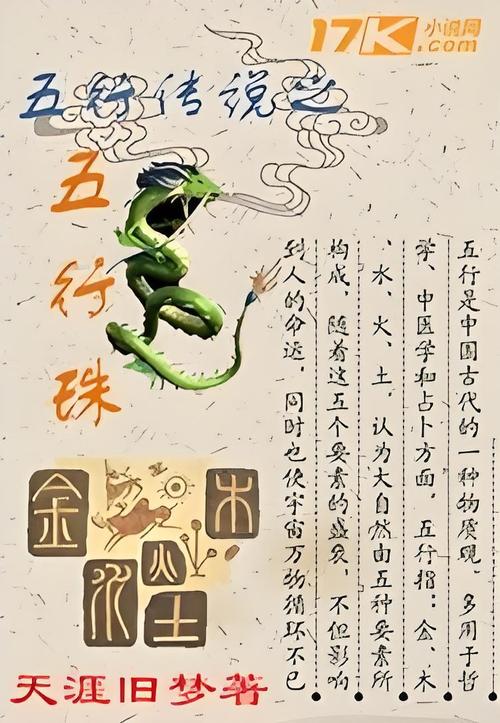 17K小说网
.com
五行传说之
五行珠
五行是中国古代的一种物质观。多用于哲
学、中医学和占卜方面。五行指：金、木
、水、火、土。认为大自然由五种要素所
构成，随着这五个要素的盛衰，不但影响
到人的命运，同时也使宇宙万物循环不已
金
木
水
火
土
天涯旧梦著